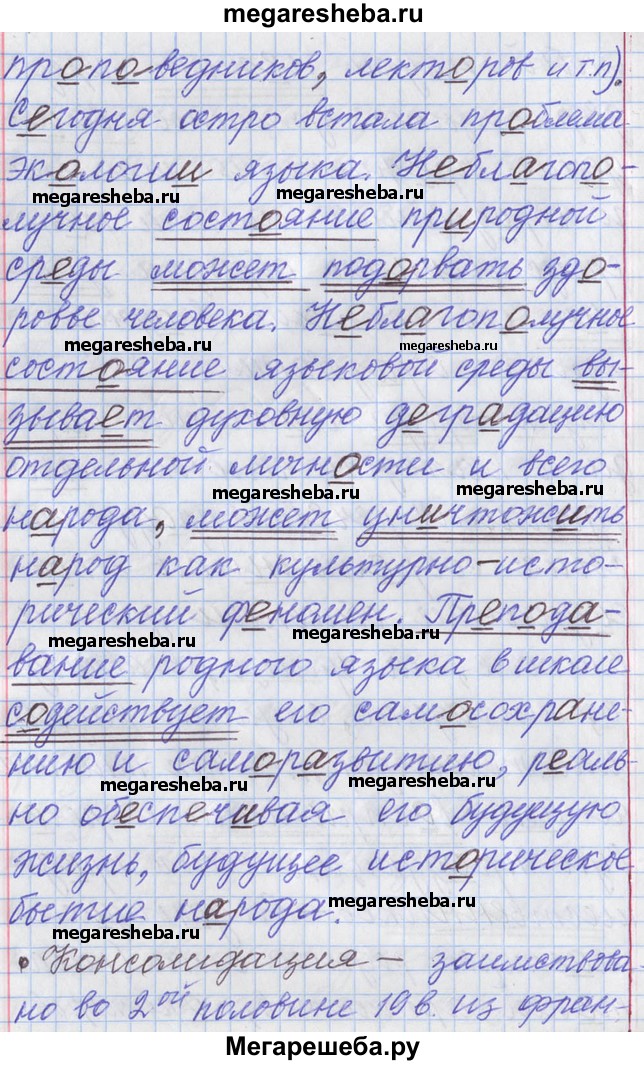 megaresheba.ru
проповедников, лекторов и т.п).
Сегодня остро встала проблема
экологии языка. Неблагопо-
megaresheba.ru megaresheba.ru
лучное состояние природной
среды может подорвать здо-
ровье человека. Неблагополучное
megaresheba.ru megaresheba.ru
состояние языковой среды вы-
зывает духовную деградацию
отдельной личности и всего
megaresheba.ru megaresheba.ru
народа, может уничтожить
народ как культурно-исто-
рический феномен. Препода-
megaresheba.ru megaresheba.ru
вание родного языка в школе
содействует его самосохране-
нию и саморазвитию, реаль-
megaresheba.ru megaresheba.ru
но обеспечивая его будущую
жизнь, будущее историческое
бытие народа.
megaresheba.ru
megaresheba.ru
• Консолидация – заимствова-
но во 2ой половине 19 в. из фран-
Мегарешеба.ру